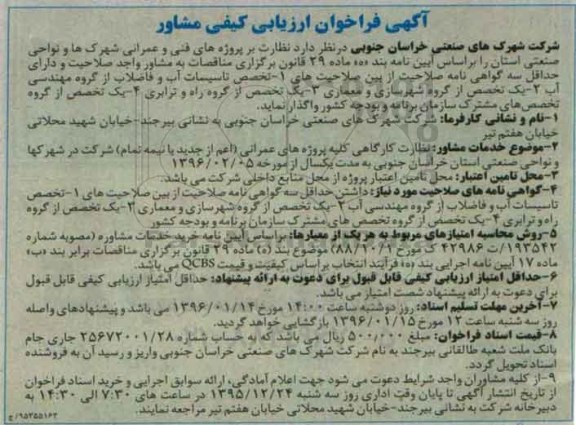 آگهی فراخوان ارزیابی کیفی مشاور
شرکت شهرک های صنعتی خراسان جنوبی درنظر دارد نظارت بر پروژه های فنی و عمرانی شهرک ها و نواحی
صنعتی استان را براساس آیین نامه بند «ه» ماده ۲۹ قانون برگزاری مناقصات به مشاور واجد صلاحیت و دارای
حداقل سه گواهی نامه صلاحیت از بین صلاحیت های ۱-تخصص تاسیسات آب و فاضلاب از گروه مهندسی
آب ۲-یک تخصص از گروه شهرسازی و معماری ۳-یک تخصص از گروه راه و ترابری ۴-یک تخصص از گروه
تخصص های مشترک سازمان برنامه و بودجه کشور واگذار نماید.
۱-نام و نشانی کارفرما: شرکت شهرک های صنعتی خراسان جنوبی به نشانی بیرجند-خیابان شهید محلاتی
خیابان هفتم تیر
۲-موضوع خدمات مشاور: نظارت کارگاهی کلیه پروژه های عمرانی (اعم از جدید یا نیمه تمام) شرکت در شهرکها
و نواحی صنعتی استان خراسان جنوبی به مدت یکسال از مورخه ۱۳۹۶/۰۲/۰۵
۳-محل تامین اعتبار: محل تامین اعتبار پروژه از محل منابع داخلی شرکت می باشد.
۴-گواهی نامه های صلاحیت مورد نیاز: داشتن حداقل سه گواهی نامه صلاحیت از بین صلاحیت های ۱-تخصص
تاسیسات آب و فاضلاب از گروه مهندسی آب ۲-یک تخصص از گروه شهرسازی و معماری ۳-یک تخصص از گروه
راه و ترابری ۴-یک تخصص از گروه تخصص های مشترک سازمان برنامه و بودجه کشور
۵-روش محاسبه امتیازهای مربوط به هر یک از معیارها: براساس آیین نامه خرید خدمات مشاوره (مصوبه شماره
۱۹۳۵۴۲/ت ۴۲۹۸۶ ک مورخ ۸۸/۱۰/۱) موضوع بند (ه) ماده ۲۹ قانون برگزاری مناقصات برابر بند «ب»
ماده ۱۷ آیین نامه اجرایی بند «ه» فرآیند انتخاب براساس کیفیت و قیمت QCBS می باشد.
۶-حداقل امتیاز ارزیابی کیفی قابل قبول برای دعوت به ارائه پیشنهاد: حداقل امتیاز ارزیابی کیفی قابل قبول
برای دعوت به ارائه پیشنهاد شصت امتیاز می باشد.
۷-آخرین مهلت تسلیم اسناد: روز دوشنبه ساعت ۱۴:۰۰ مورخ ۱۳۹۶/۰۱/۱۴ می باشد و پیشنهادهای واصله
روز سه شنبه ساعت ۱۲ مورخ ۱۳۹۶/۰۱/۱۵ بازگشایی خواهد گردید.
۸-قیمت اسناد فراخوان: مبلغ ۵۰۰,۰۰۰ ریال می باشد که به حساب شماره ۲۵۶۷۲۰۰۱/۲۸ جاری جام
بانک ملت شعبه طالقانی بیرجند به نام شرکت شهرک های صنعتی خراسان جنوبی واریز و رسید آن به فروشنده
اسناد تحویل گردد.
۹-از کلیه مشاوران واجد شرایط دعوت می شود جهت اعلام آمادگی، ارائه سوابق اجرایی و خرید اسناد فراخوان
از تاریخ انتشار آگهی تا پایان وقت اداری روز سه شنبه ۱۳۹۵/۱۲/۲۴ در ساعت های ۷:۳۰ الی ۱۴:۳۰ به
دبیرخانه شرکت به نشانی بیرجند-خیابان شهید محلاتی خیابان هفتم تیر مراجعه نمایند.